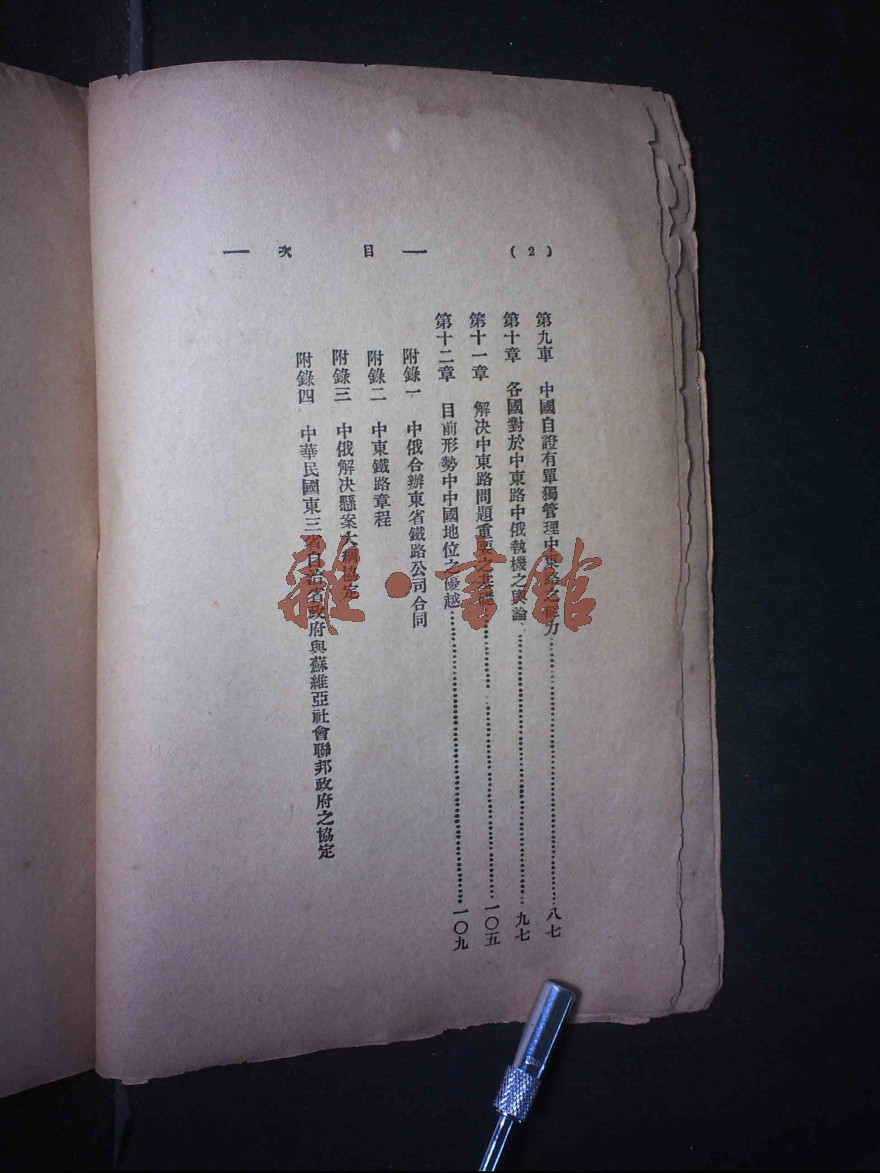 (2)
— 目 次 —
第九車 中國自證有單獨管理中東路之能力 八七
第十章 各國對於中東路中俄執機之輿論 九七
第十一章 解決中東路問題重要之基礎 一〇五
第十二章 目前形勢中中國地位之優越 一〇九
附錄一 中俄合辦東省鐵路公司合同
附錄二 中東鐵路章程
附錄三 中俄解決懸案大綱協定
附錄四 中華民國東三省自治省政府與蘇維亞社會聯邦政府之協定
雜·書館